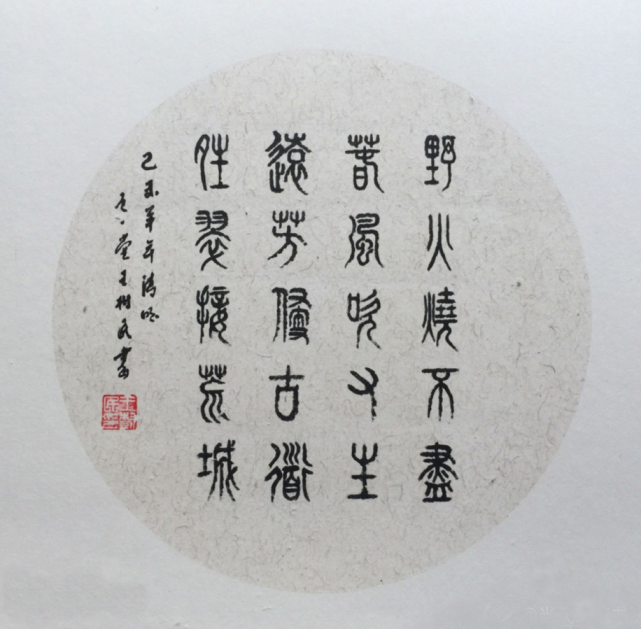 野火燒不盡
春風吹又生
遠芳侵古道
晴翠接荒城
己未羊年清明
堂王樹民書